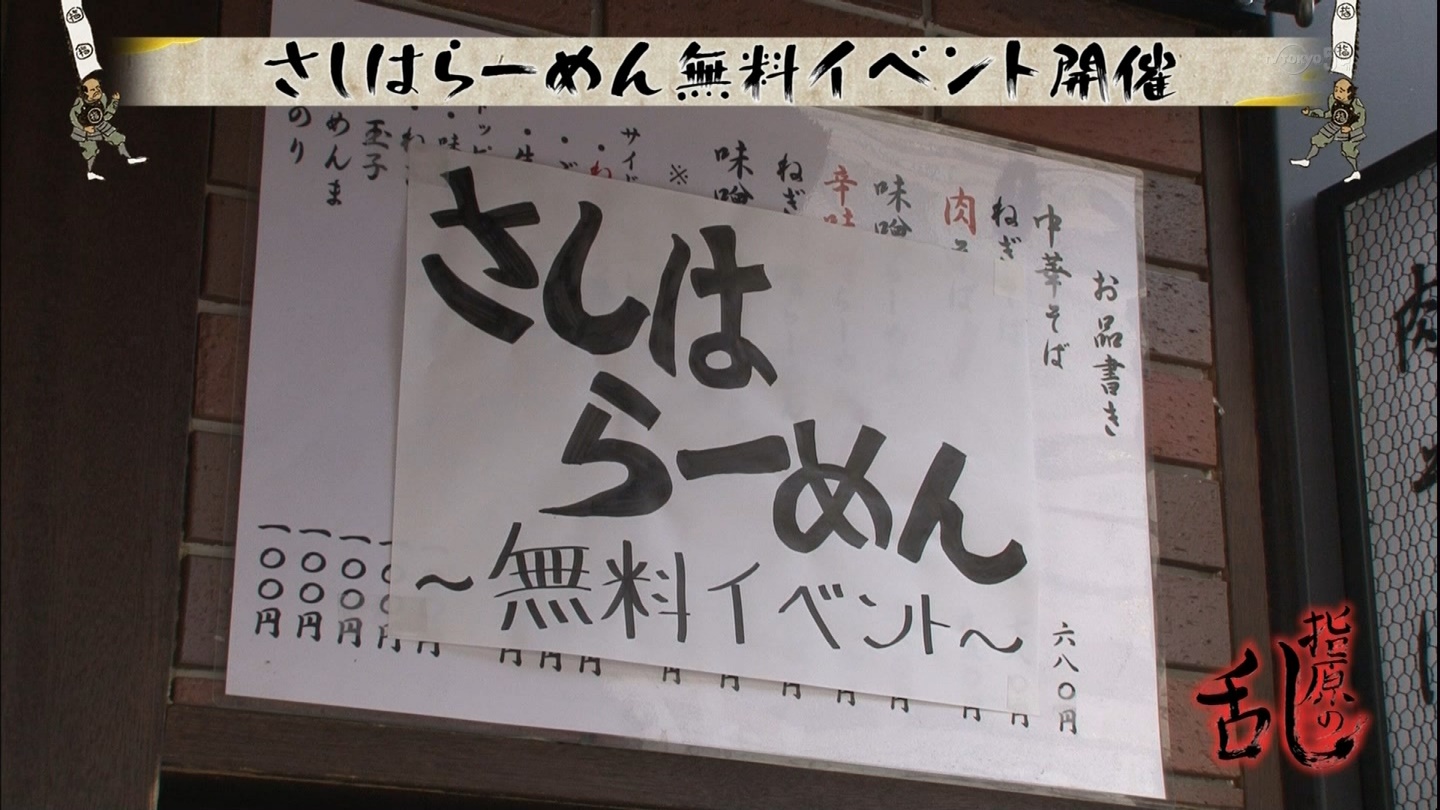 さしはらーめん無料イベント開催
TV TOKYO
指
指
指
指
お品書き
中華そば
六八〇円
ねぎ
肉そ
味噌
辛味
ねぎ
※
味噌
サイド
・ね
・味
玉子
めんま
のり
さしは
らーめん
〜無料イベント〜
一〇〇円
一〇〇円
一〇〇円
円
円
円
円
円
円
円
円
円
円
円
円
指原の
乱
肉